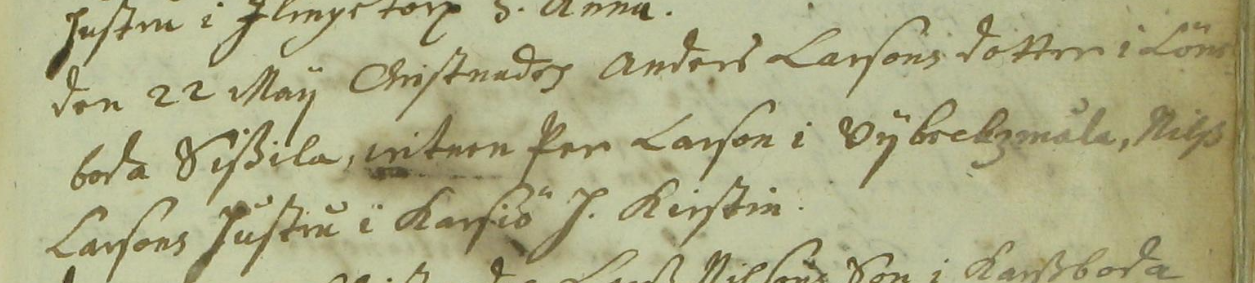 hustru i Flingetorp h. Anna.
den 22 Maÿ Christnades Anders Larsons dotter i Löns
boda Sißila, witnen Per Larson i Vÿbreckzmåla, Nilß
Larsons hustru i Karsiö h. Kirstin.
Larß Nilsons Son i Karßboda